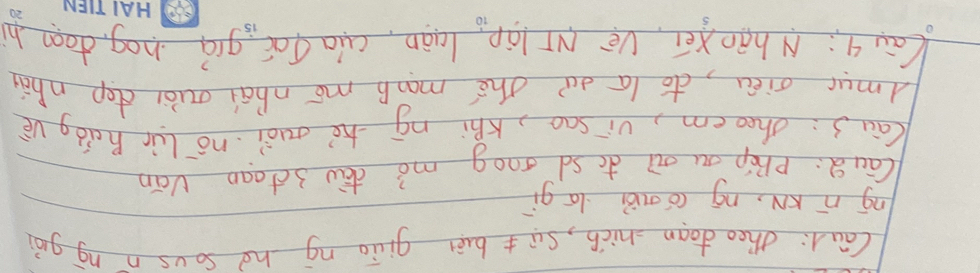 Câu 1: theo đoạn trích, sự ≠ biệt giữa ng trẻ so vs n~ ng giỏi
ng n~ KN, ng có tuổi là gì
Câu 2: Phép tu từ đc sd trong mở đầu 3 đoạn văn
Câu 3: theo em, vì sao, khi ng trẻ tuổi nỗ lực hướng về
1 mục tiêu, đó là sự thế mạnh mẽ nhất tươi đẹp nhất
Câu 4: Nhận xét về NT lập luận của tác giả trong đoạn
0 5 10 15 20
HẢI TIẾN